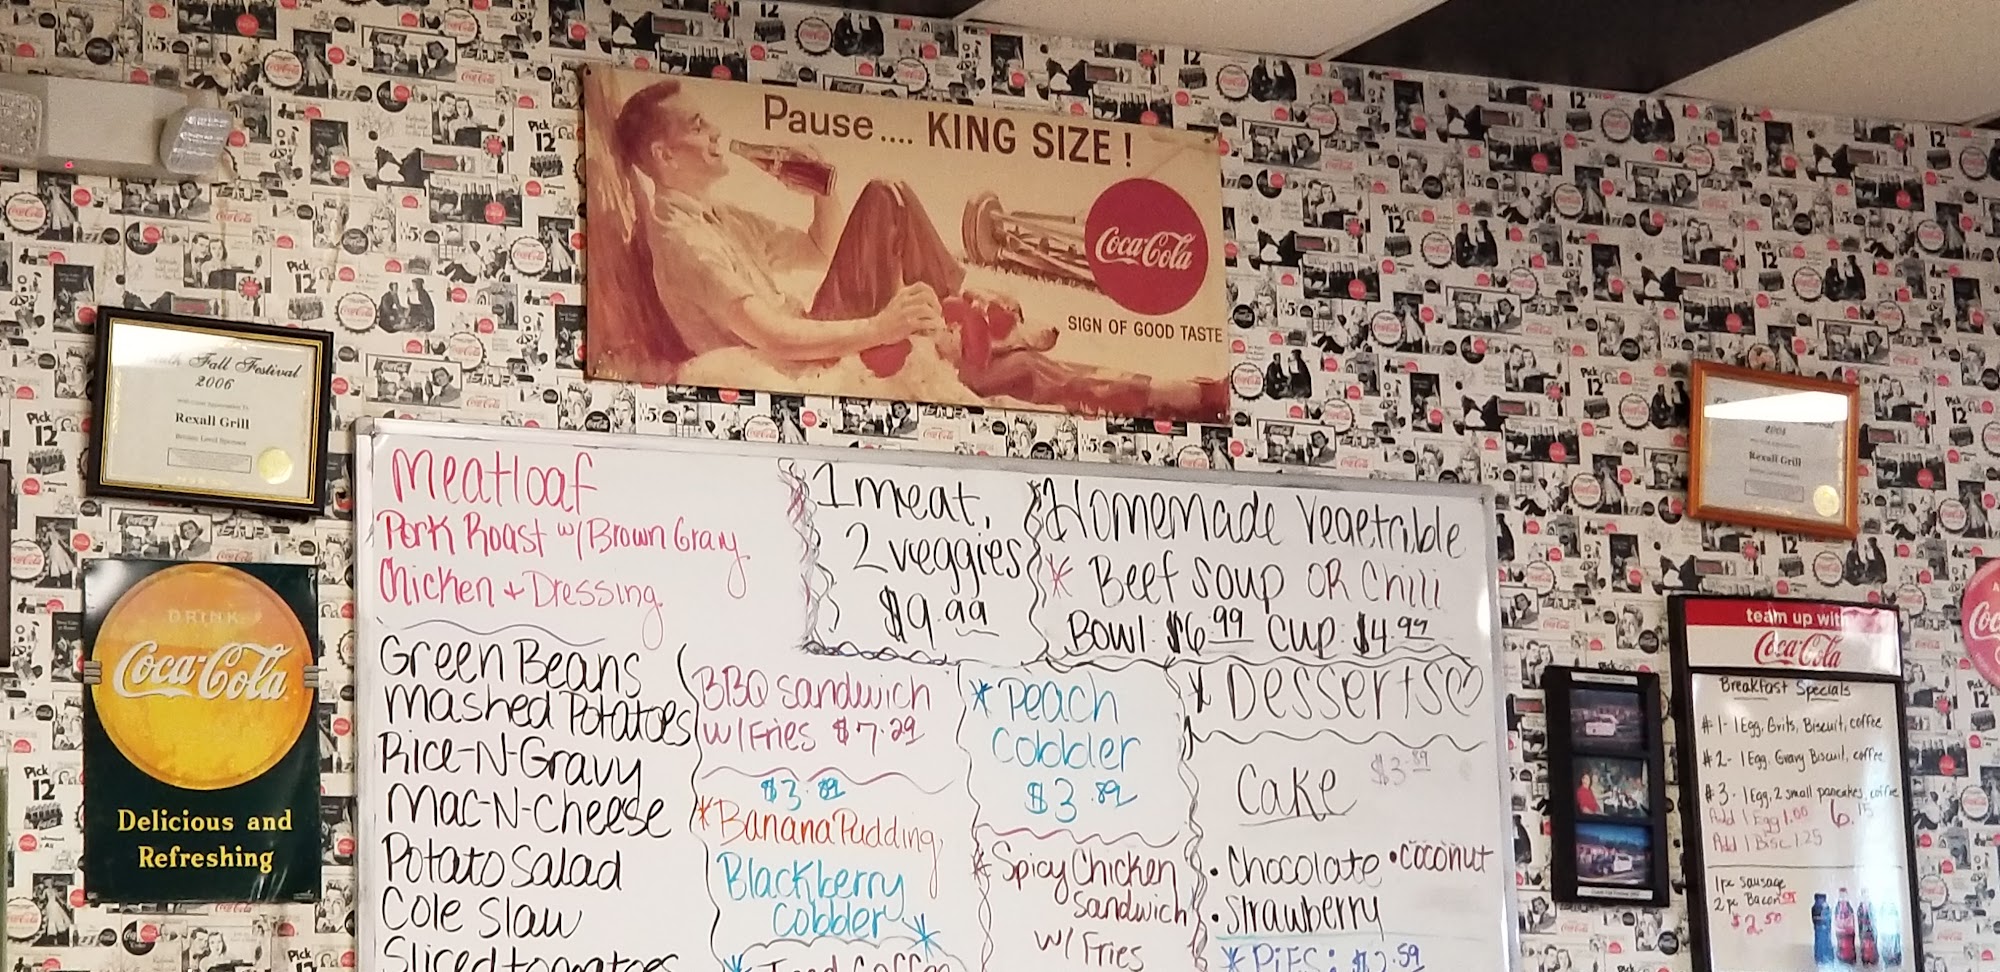 Pause.... KING SIZE!
Coca-Cola
SIGN OF GOOD TASTE
Fall Festival
2006
Rexall Grill
DRINK
Coca-Cola
Delicious and
Refreshing
Meatloaf
Pork Roast w/ Brown Gravy
Chicken + Dressing
Green Beans
Mashed Potatoes
Rice-N-Gravy
Mac-N-Cheese
Potato Salad
Cole Slaw
Sliced tomatoes
1 meat,
2 veggies
$9.99
Homemade Vegetrible
* Beef Soup OR Chili
Bowl: $6.99 Cup: $4.99
BBQ Sandwich
w/ Fries $7.29
$3.89
*Banana Pudding
Blackberry
Cobbler
*Peach
Cobbler
$3.89
*Spicy Chicken
Sandwich
w/ Fries
* Desserts
Cake $3.89
• Chocolate • Coconut
• Strawberry
* Pies:
Rexall Grill
team up with
Coca-Cola
Breakfast Specials
#1- 1 Egg, Grits, Biscuit, coffee
#2- 1 Egg, Gravy Biscuit, coffee
#3- 1 Egg, 2 small pancakes, coffee
Add 1 Egg 1.00 6.15
Add 1 Bisc 1.25
1 pc Sausage
2 pc Bacon
$2.50